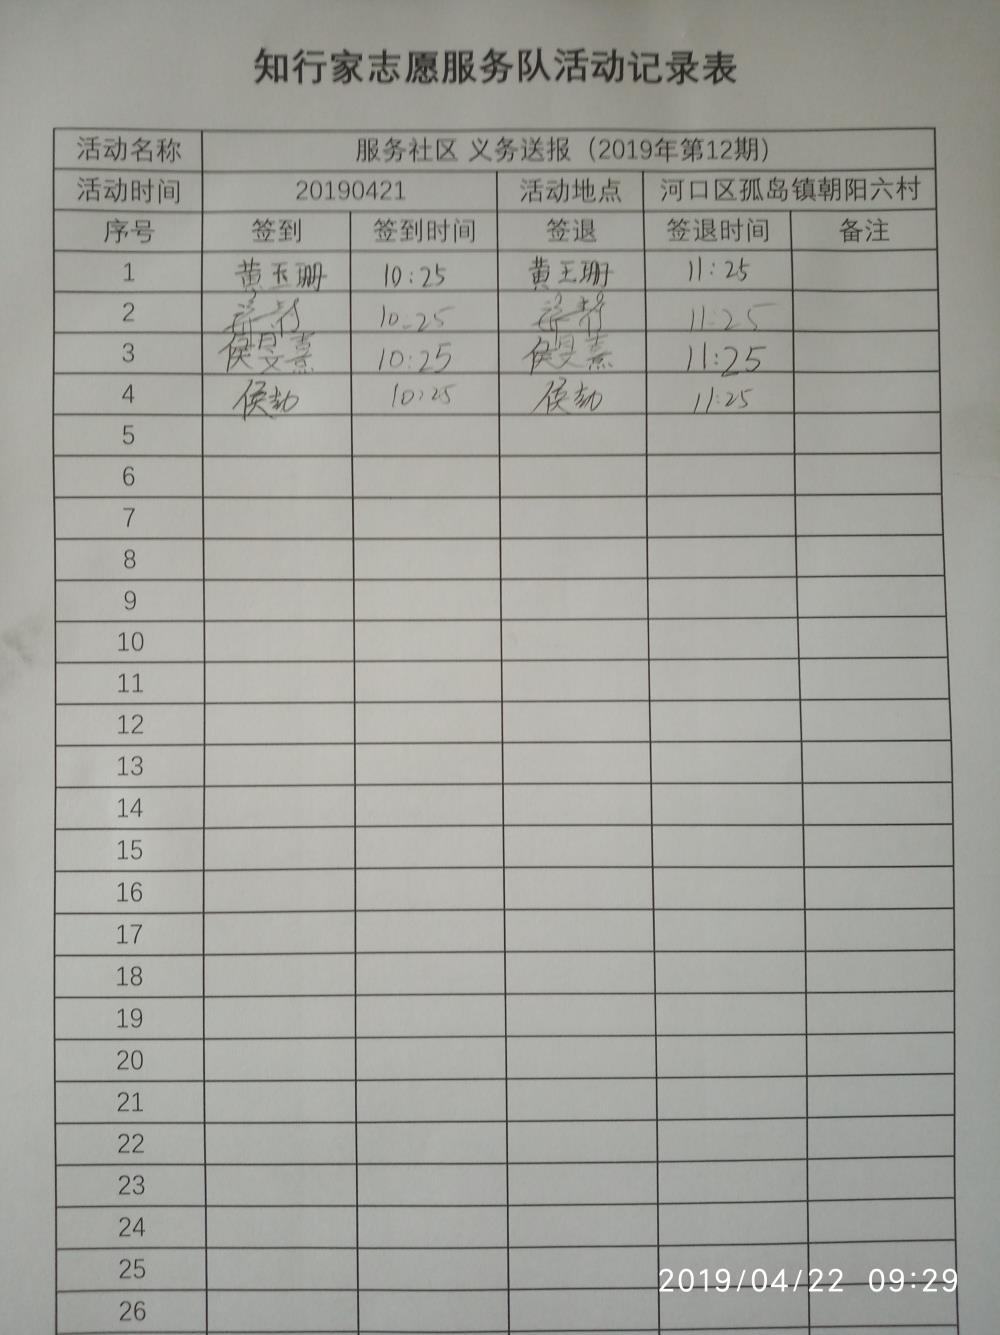 知行家志愿服务队活动记录表
活动名称 服务社区 义务送报（2019年第12期）
活动时间 20190421 活动地点 河口区孤岛镇朝阳六村
序号 签到 签到时间 签退 签退时间 备注
1 黄玉珊 10:25 黄玉珊 11:25
2 10:25 11:25
3 侯昊熹 10:25 侯昊熹 11:25
4 侯勃 10:25 侯勃 11:25
5
6
7
8
9
10
11
12
13
14
15
16
17
18
19
20
21
22
23
24
25
26
2019/04/22 09:29